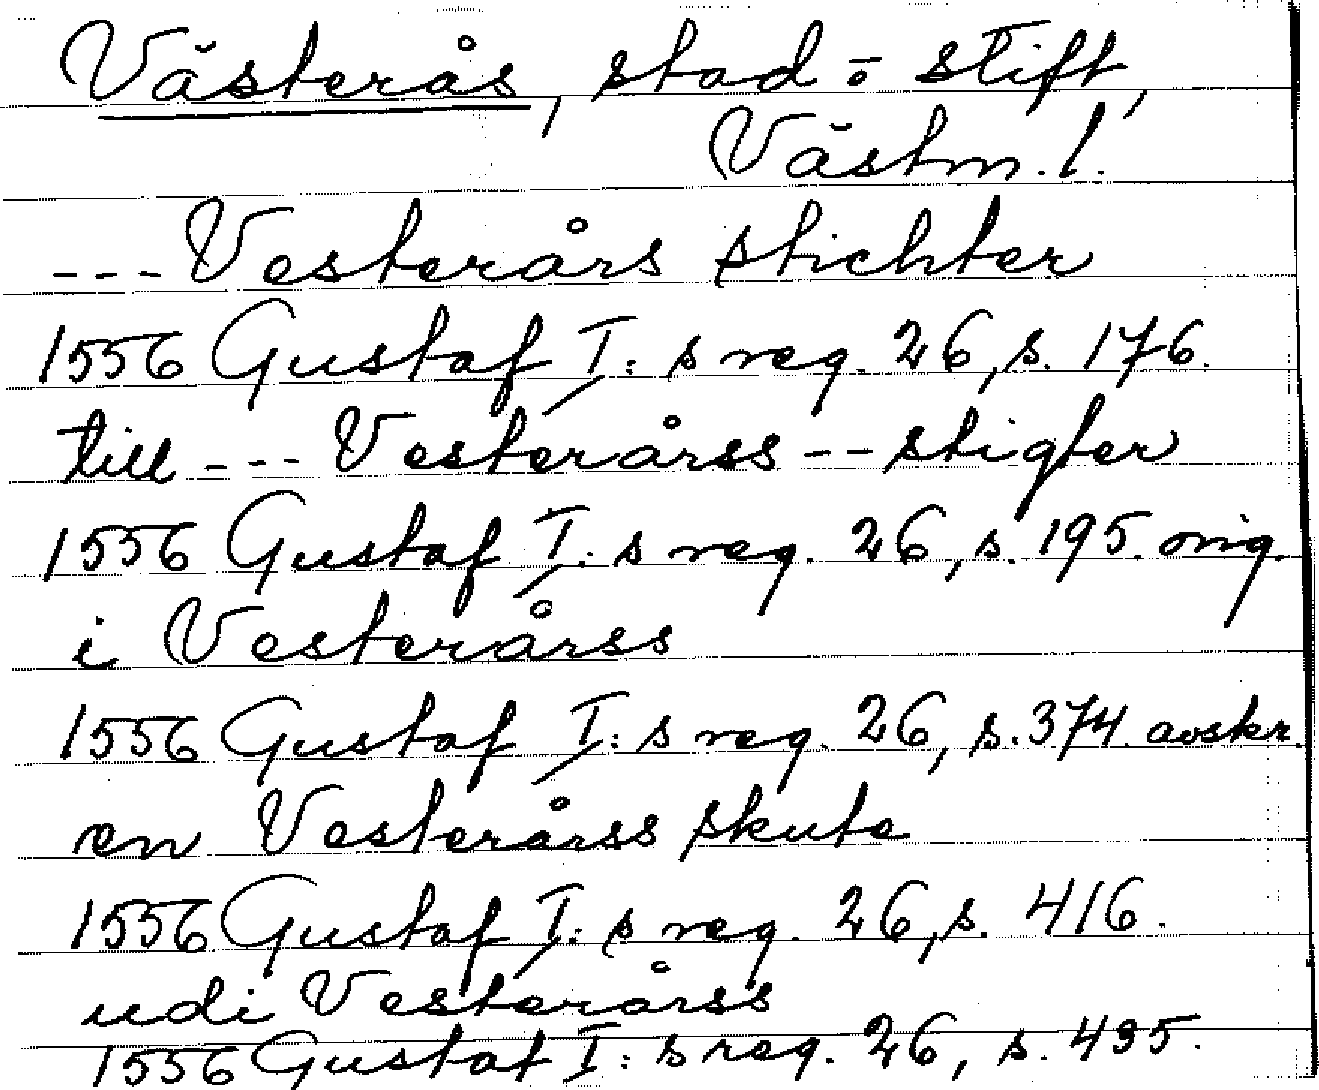 Västerås, stad o. stift,
Västm. l.
--- Vesterårs stichter
1556 Gustaf I:s reg. 26, s. 176.
till --- Vesterårss -- stigter
1556 Gustaf I:s reg. 26, s. 195. orig.
i Vesterårss
1556 Gustaf I:s reg. 26, s. 374. avskr.
en Vesterårss skute
1556 Gustaf I:s reg. 26, s. 416.
udi Vesterårss
1556 Gustaf I:s reg. 26, s. 495.